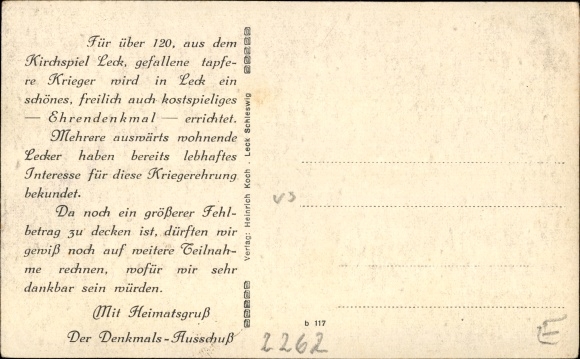 Für über 120, aus dem
Kirchspiel Leck, gefallene tapfe-
re Krieger wird in Leck ein
schönes, freilich auch kostspieliges
— Ehrendenkmal — errichtet.
Mehrere auswärts wohnende
Lecker haben bereits lebhaftes
Interesse für diese Kriegerehrung
bekundet.
Da noch ein größerer Fehl-
betrag zu decken ist, dürften wir
gewiß noch auf weitere Teilnah-
me rechnen, wofür wir sehr
dankbar sein würden.
Mit Heimatsgruß
Der Denkmals-Ausschuß
Verlag: Heinrich Koch . Leck Schleswig
b 117
2262
E